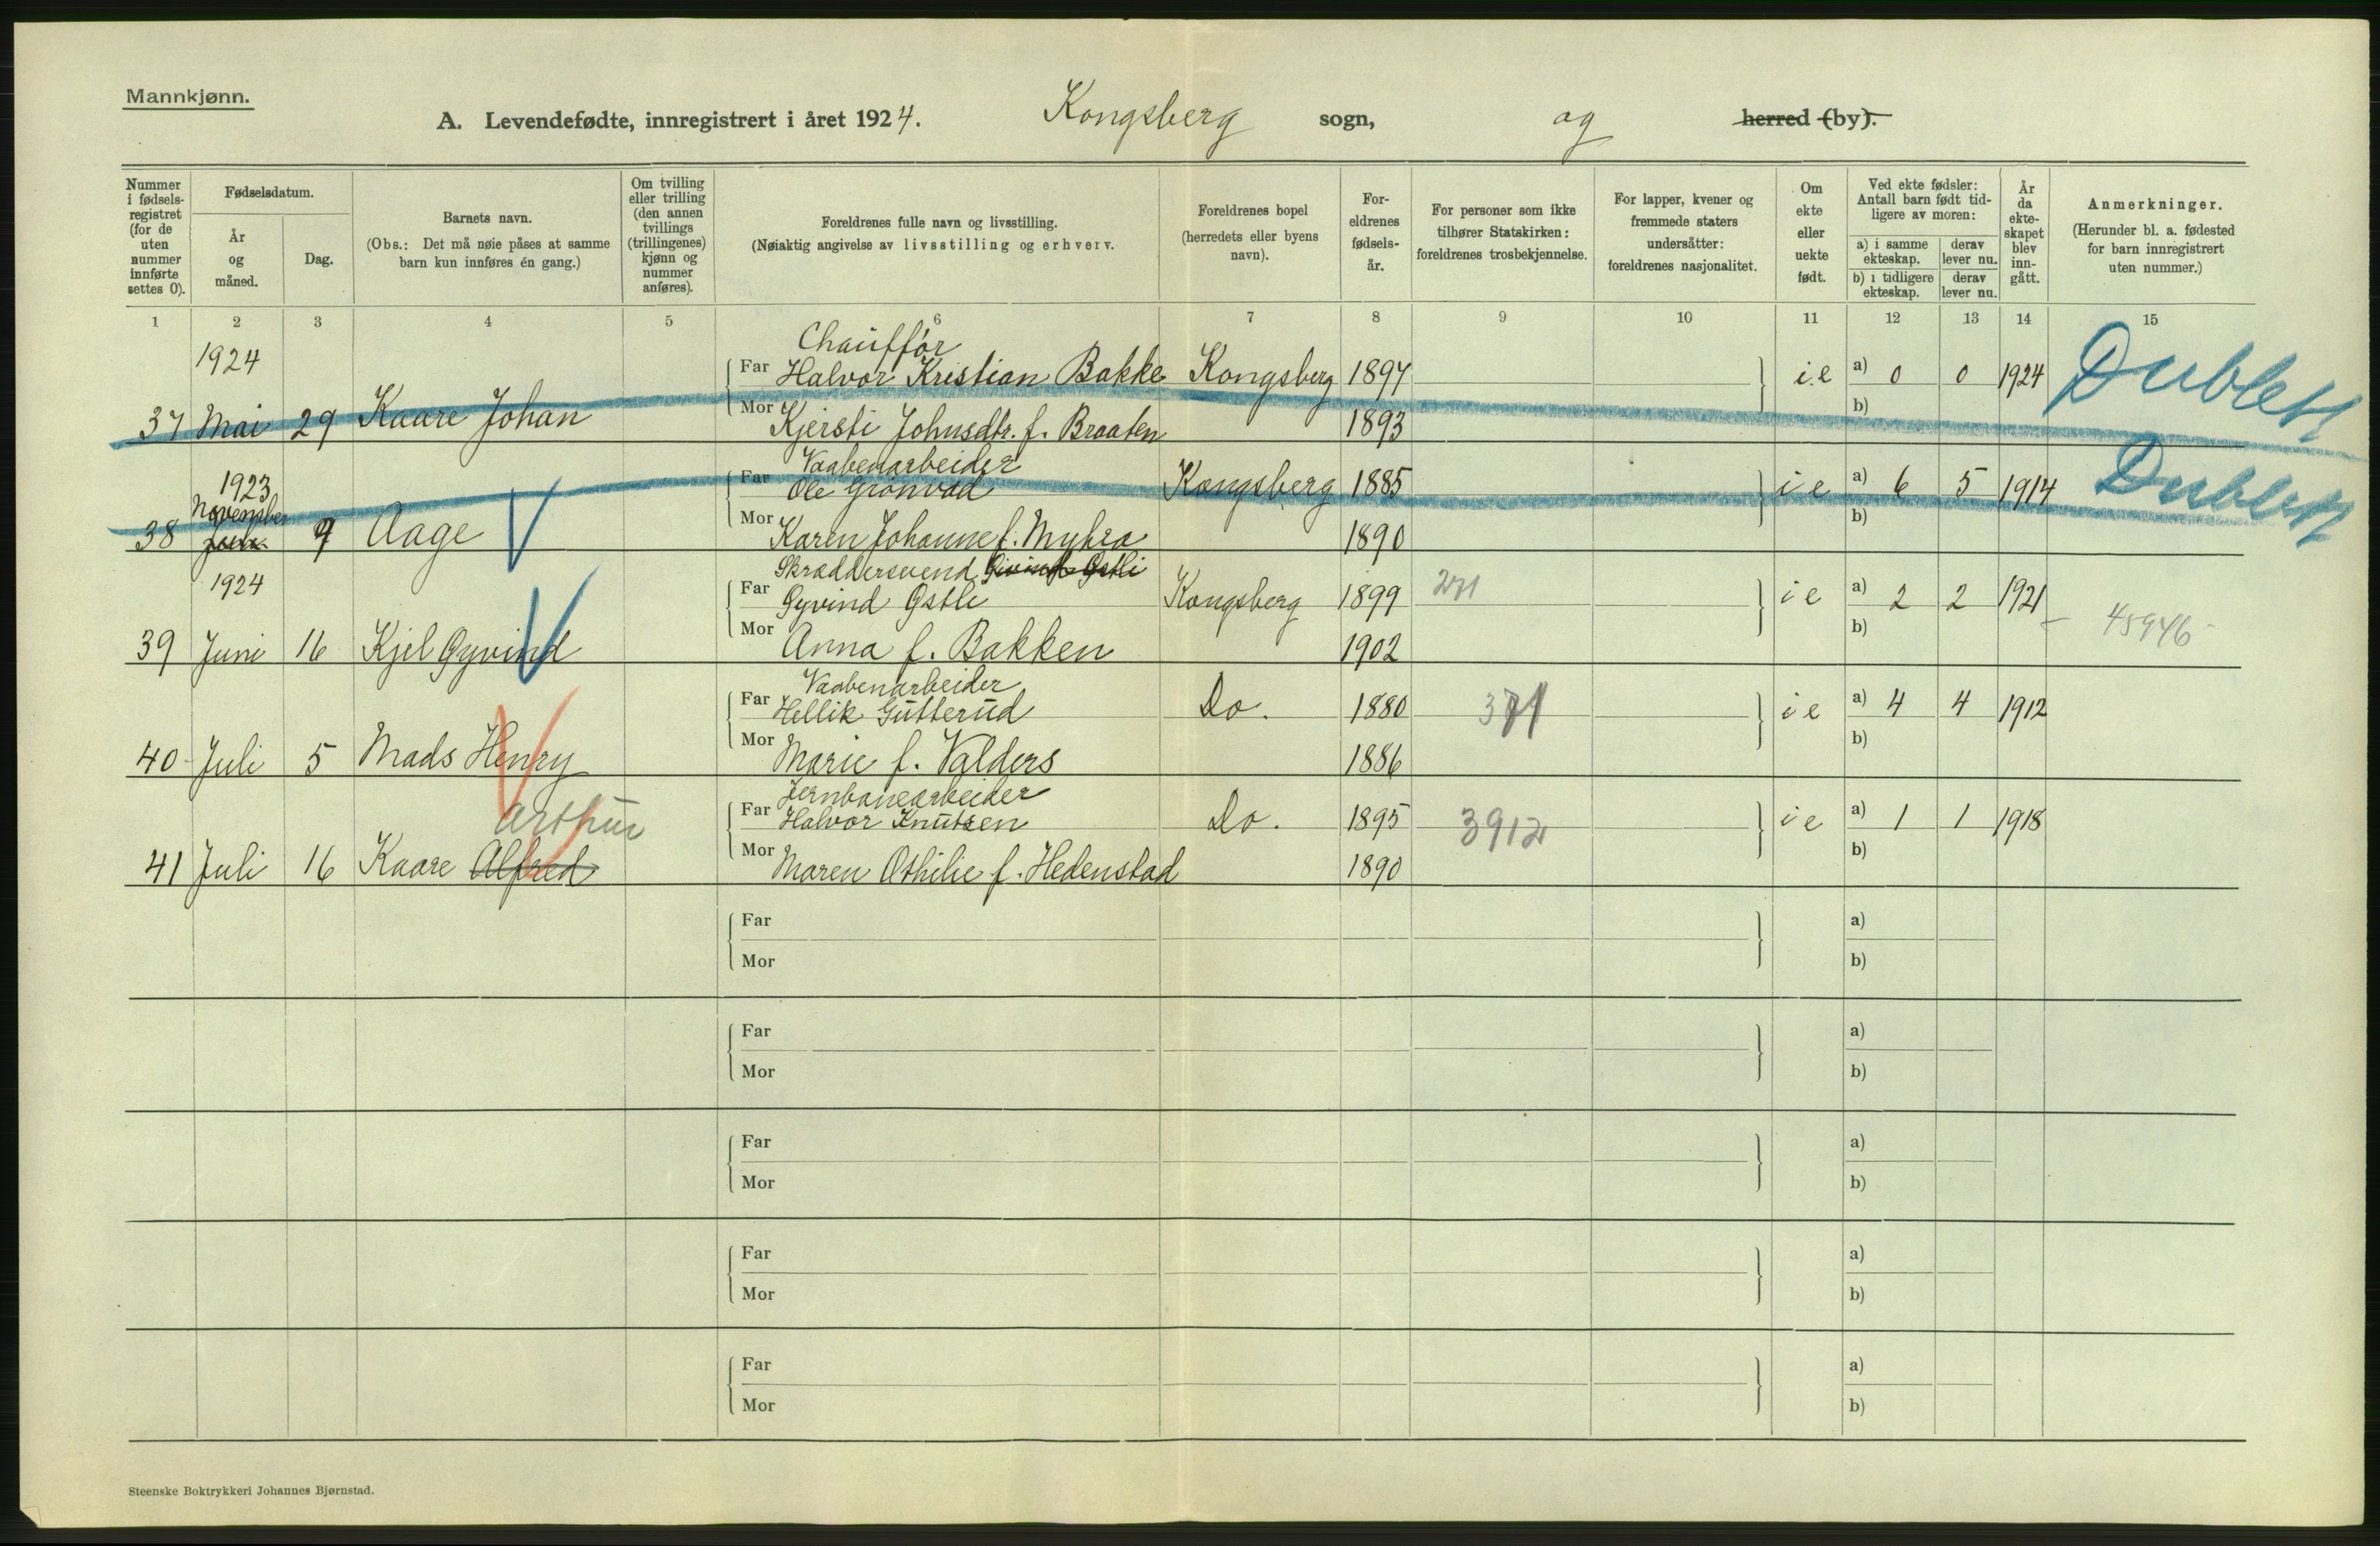 Mannkjønn.
A. Levendefødte, innregistrert i året 1924. Kongsberg sogn, og herred (by).
Nummer i fødselsregistret (for de uten nummer innførte settes 0).
Fødselsdatum.
År og måned.
Dag.
Barnets navn.
(Obs.: Det må nøie påses at samme barn kun innføres én gang.)
Om tvilling eller trilling (den annen tvillings (trillingenes) kjønn og nummer anføres).
Foreldrenes fulle navn og livsstilling.
(Nøiaktig angivelse av livsstilling og erhverv.
Foreldrenes bopel (herredets eller byens navn).
Foreldrenes fødselsår.
For personer som ikke tilhører Statskirken: foreldrenes trosbekjennelse.
For lapper, kvener og fremmede staters undersåtter: foreldrenes nasjonalitet.
Om ekte eller uekte født.
Ved ekte fødsler: Antall barn født tidligere av moren:
a) i samme ekteskap.
derav lever nu.
b) i tidligere ekteskap.
derav lever nu.
År da ekteskapet blev inngått.
Anmerkninger.
(Herunder bl. a. fødested for barn innregistrert uten nummer.)
1 2 3 4 5 6 7 8 9 10 11 12 13 14 15
1924 Chauffør
Far Halvor Kristian Bakke Kongsberg 1897 i.e a) 0 0 1924 Dublett
37 Mai 29 Kaare Johan Mor Kjersti Johnsdtr. f. Braaten 1893 b)
1923 Vaabenarbeider
November Far Ole Grönvad Kongsberg 1885 i e a) 6 5 1914 Dublett
38 9 Aage Mor Karen Johanne f. Myhra 1890 b)
1924 Skræddersvend
Far Øyvind Østli Kongsberg 1899 271 i e a) 2 2 1921 45946
39 Juni 16 Kjel Øyvind Mor Anna f. Bakken 1902 b)
Vaabenarbeider
Far Hellik Gutterud Do. 1880 371 i e a) 4 4 1912
40 Juli 5 Mads Henry Mor Marie f. Valders 1886 b)
Jernbanearbeider
Arthur Far Halvor Knutsen Do. 1895 3912 i e a) 1 1 1918
41 Juli 16 Kaare Alfred Mor Maren Othilie f. Hedenstad 1890 b)
Far a)
Mor b)
Far a)
Mor b)
Far a)
Mor b)
Far a)
Mor b)
Far a)
Mor b)
Steenske Boktrykkeri Johannes Bjørnstad.